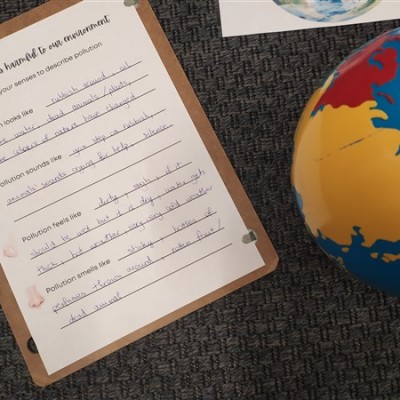 s harmful to our environment
your senses to describe pollution
looks like rubbish around, oil
water, dead animals / plants,
colours of nature have changed
Pollution sounds like you step on rubbish,
animals' sounds crying for help, silence
Pollution feels like dirty, rough, if it
should be wet but it is dry, water gets
thick, but weather very very cold weather
Pollution smells like stinky, bottles of
perfumes thrown around, rotten fruit /
dead animal